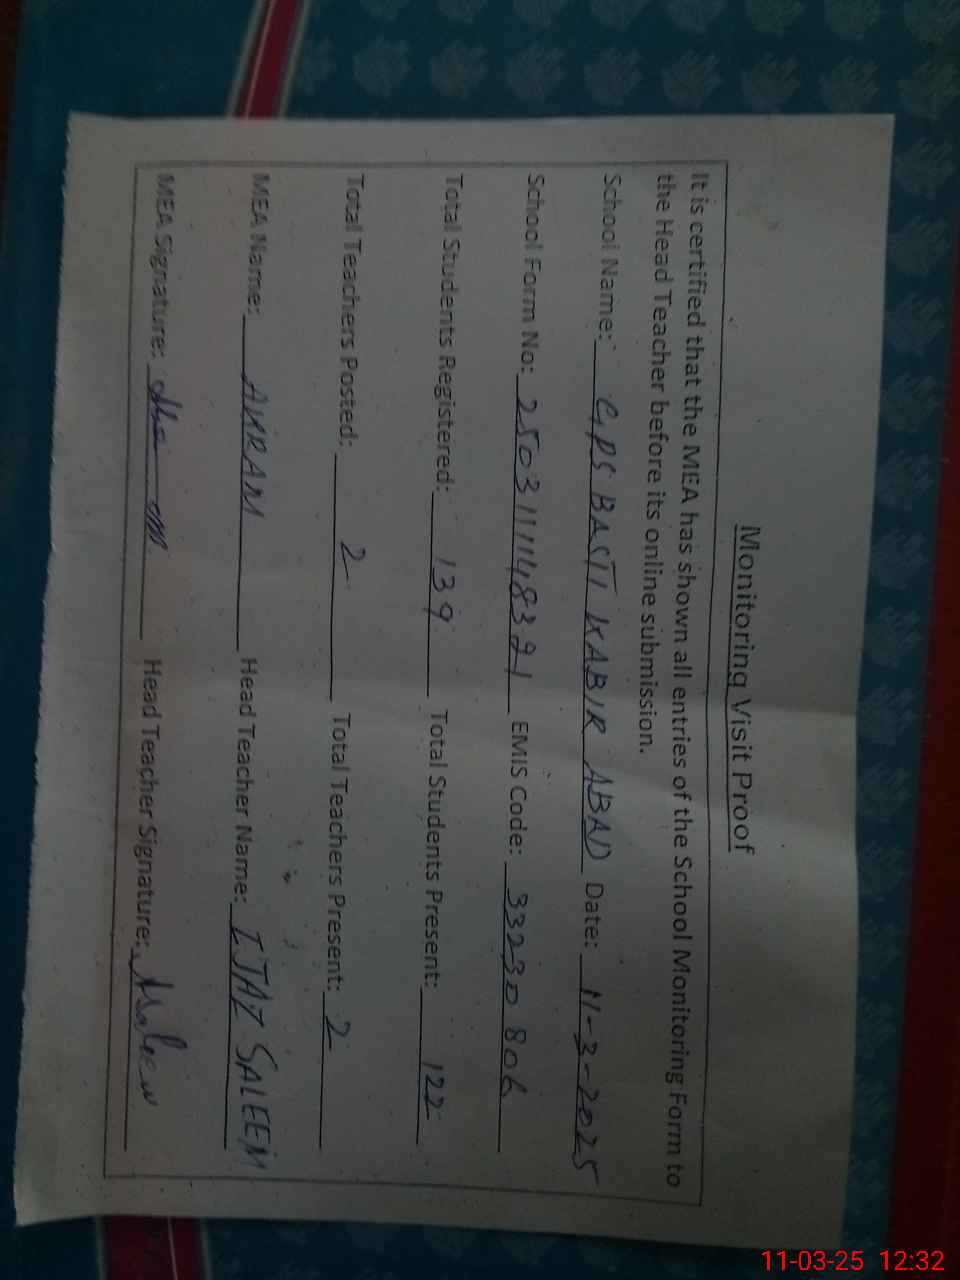 Monitoring Visit Proof
It is certified that the MEA has shown all entries of the School Monitoring Form to
the Head Teacher before its online submission.
School Name: GPS BASTI KABIR ABAD Date: 11-3-2025
School Form No: 250311148321 EMIS Code: 33230806
Total Students Registered: 139 Total Students Present: 122
Total Teachers Posted: 2 Total Teachers Present: 2
MEA Name: AKRAM Head Teacher Name: IJAZ SALEEM
MEA Signature: Head Teacher Signature:
11-03-25 12:32